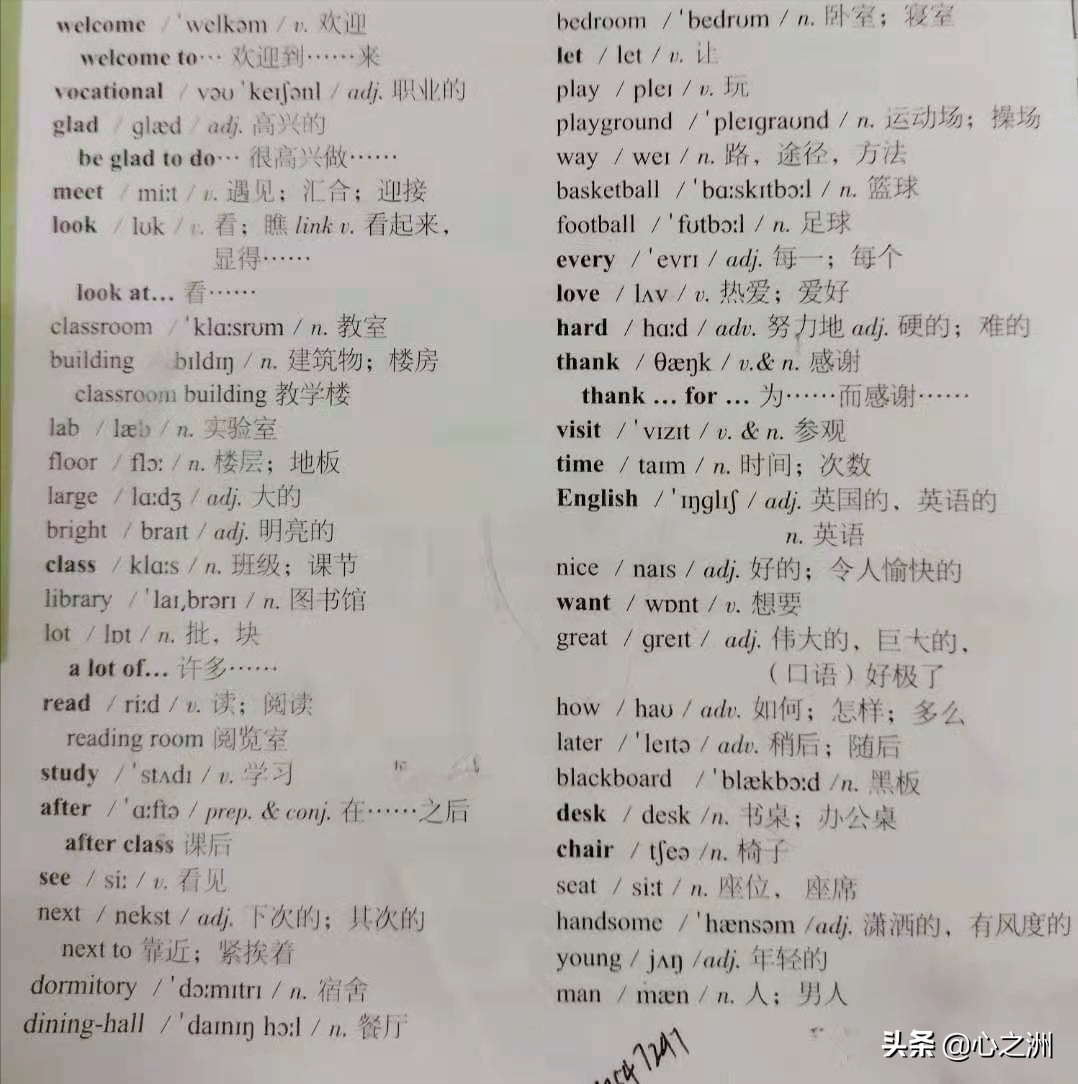 welcome / ˈwelkəm / v. 欢迎
welcome to… 欢迎到……来
vocational / vəʊˈkeɪʃənl / adj. 职业的
glad / ɡlæd / adj. 高兴的
be glad to do… 很高兴做……
meet / mi:t / v. 遇见；汇合；迎接
look / lʊk / v. 看；瞧 link v. 看起来，
显得……
look at… 看……
classroom / ˈklɑ:srʊm / n. 教室
building bɪldɪŋ / n. 建筑物；楼房
classroom building 教学楼
lab / læb / n. 实验室
floor / flɔ: / n. 楼层；地板
large / lɑ:dʒ / adj. 大的
bright / braɪt / adj. 明亮的
class / klɑ:s / n. 班级；课节
library / ˈlaɪˌbrərɪ / n. 图书馆
lot / lɒt / n. 批，块
a lot of… 许多……
read / ri:d / v. 读；阅读
reading room 阅览室
study / ˈstʌdɪ / v. 学习
after / ˈɑ:ftə / prep. & conj. 在……之后
after class 课后
see / si: / v. 看见
next / nekst / adj. 下次的；其次的
next to 靠近；紧挨着
dormitory / ˈdɔ:mɪtrɪ / n. 宿舍
dining-hall / ˈdaɪnɪŋ hɔ:l / n. 餐厅
bedroom / ˈbedrʊm / n. 卧室；寝室
let / let / v. 让
play / pleɪ / v. 玩
playground / ˈpleɪɡraʊnd / n. 运动场；操场
way / weɪ / n. 路，途径，方法
basketball / ˈbɑ:skɪtbɔ:l / n. 篮球
football / ˈfʊtbɔ:l / n. 足球
every / ˈevrɪ / adj. 每一；每个
love / lʌv / v. 热爱；爱好
hard / hɑ:d / adv. 努力地 adj. 硬的；难的
thank / θæŋk / v.& n. 感谢
thank … for … 为……而感谢……
visit / ˈvɪzɪt / v. & n. 参观
time / taɪm / n. 时间；次数
English / ˈɪŋɡlɪʃ / adj. 英国的，英语的
n. 英语
nice / naɪs / adj. 好的；令人愉快的
want / wɒnt / v. 想要
great / ɡreɪt / adj. 伟大的，巨大的，
（口语）好极了
how / haʊ / adv. 如何；怎样；多么
later / ˈleɪtə / adv. 稍后；随后
blackboard / ˈblækbɔ:d /n. 黑板
desk / desk /n. 书桌；办公桌
chair / tʃeə /n. 椅子
seat / si:t / n. 座位，座席
handsome / ˈhænsəm /adj. 潇洒的，有风度的
young / jʌŋ /adj. 年轻的
man / mæn / n. 人；男人
头条 @心之洲